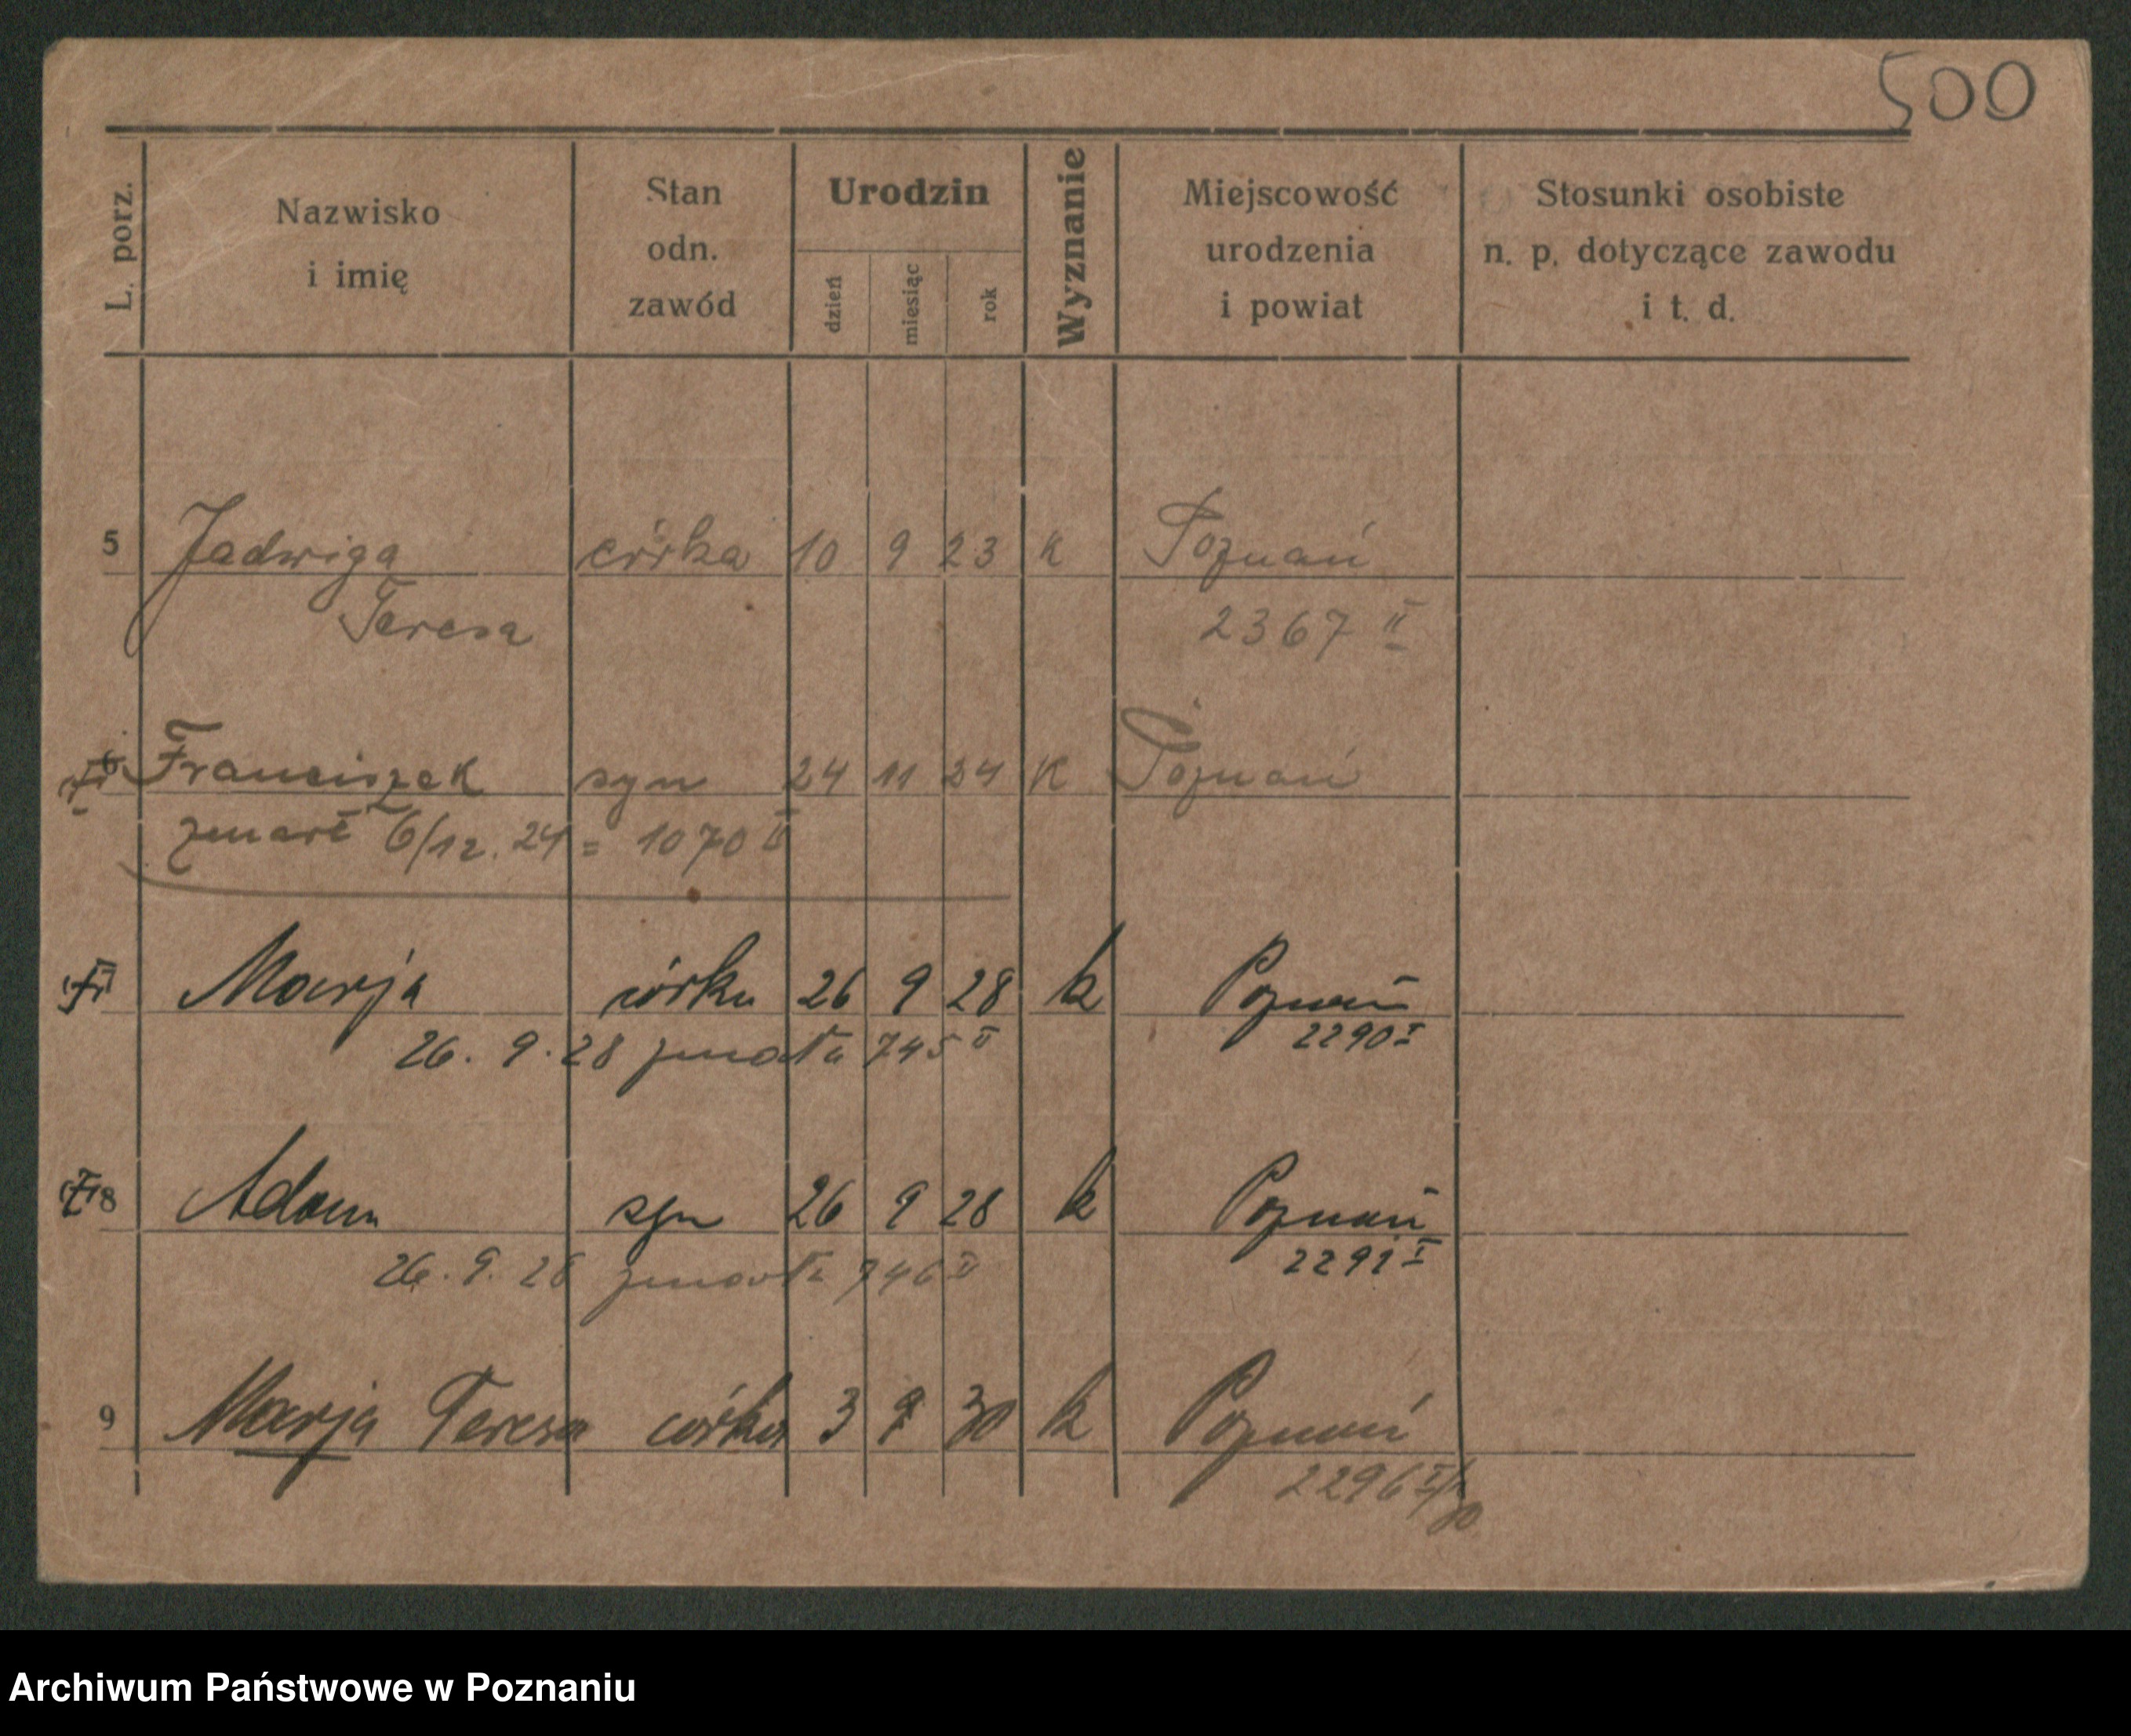 500
L. porz.
Nazwisko
i imię
Stan
odn.
zawód
Urodzin
dzień
miesiąc
rok
Wyznanie
Miejscowość
urodzenia
i powiat
Stosunki osobiste
n. p. dotyczące zawodu
i t. d.
5 Jadwiga córka 10 9 23 K Poznań
Teresa 2367 II
6 Franciszek syn 24 11 24 K Poznań
zmarł 6/12. 24 = 1070 II
7 Marja córka 26 9 28 k Poznań
26. 9. 28 zmarła 745 II 2290 I
8 Adam syn 26 9 28 k Poznań
26. 9. 28 zmarła 746 II 2291 I
9 Marja Teresa córka 3 9 30 k Poznań
2296
Archiwum Państwowe w Poznaniu